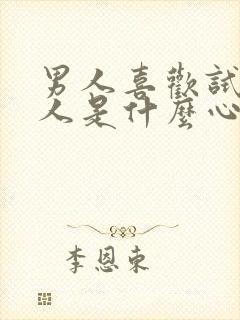 男人喜歡試
人是什麼心
李恩東